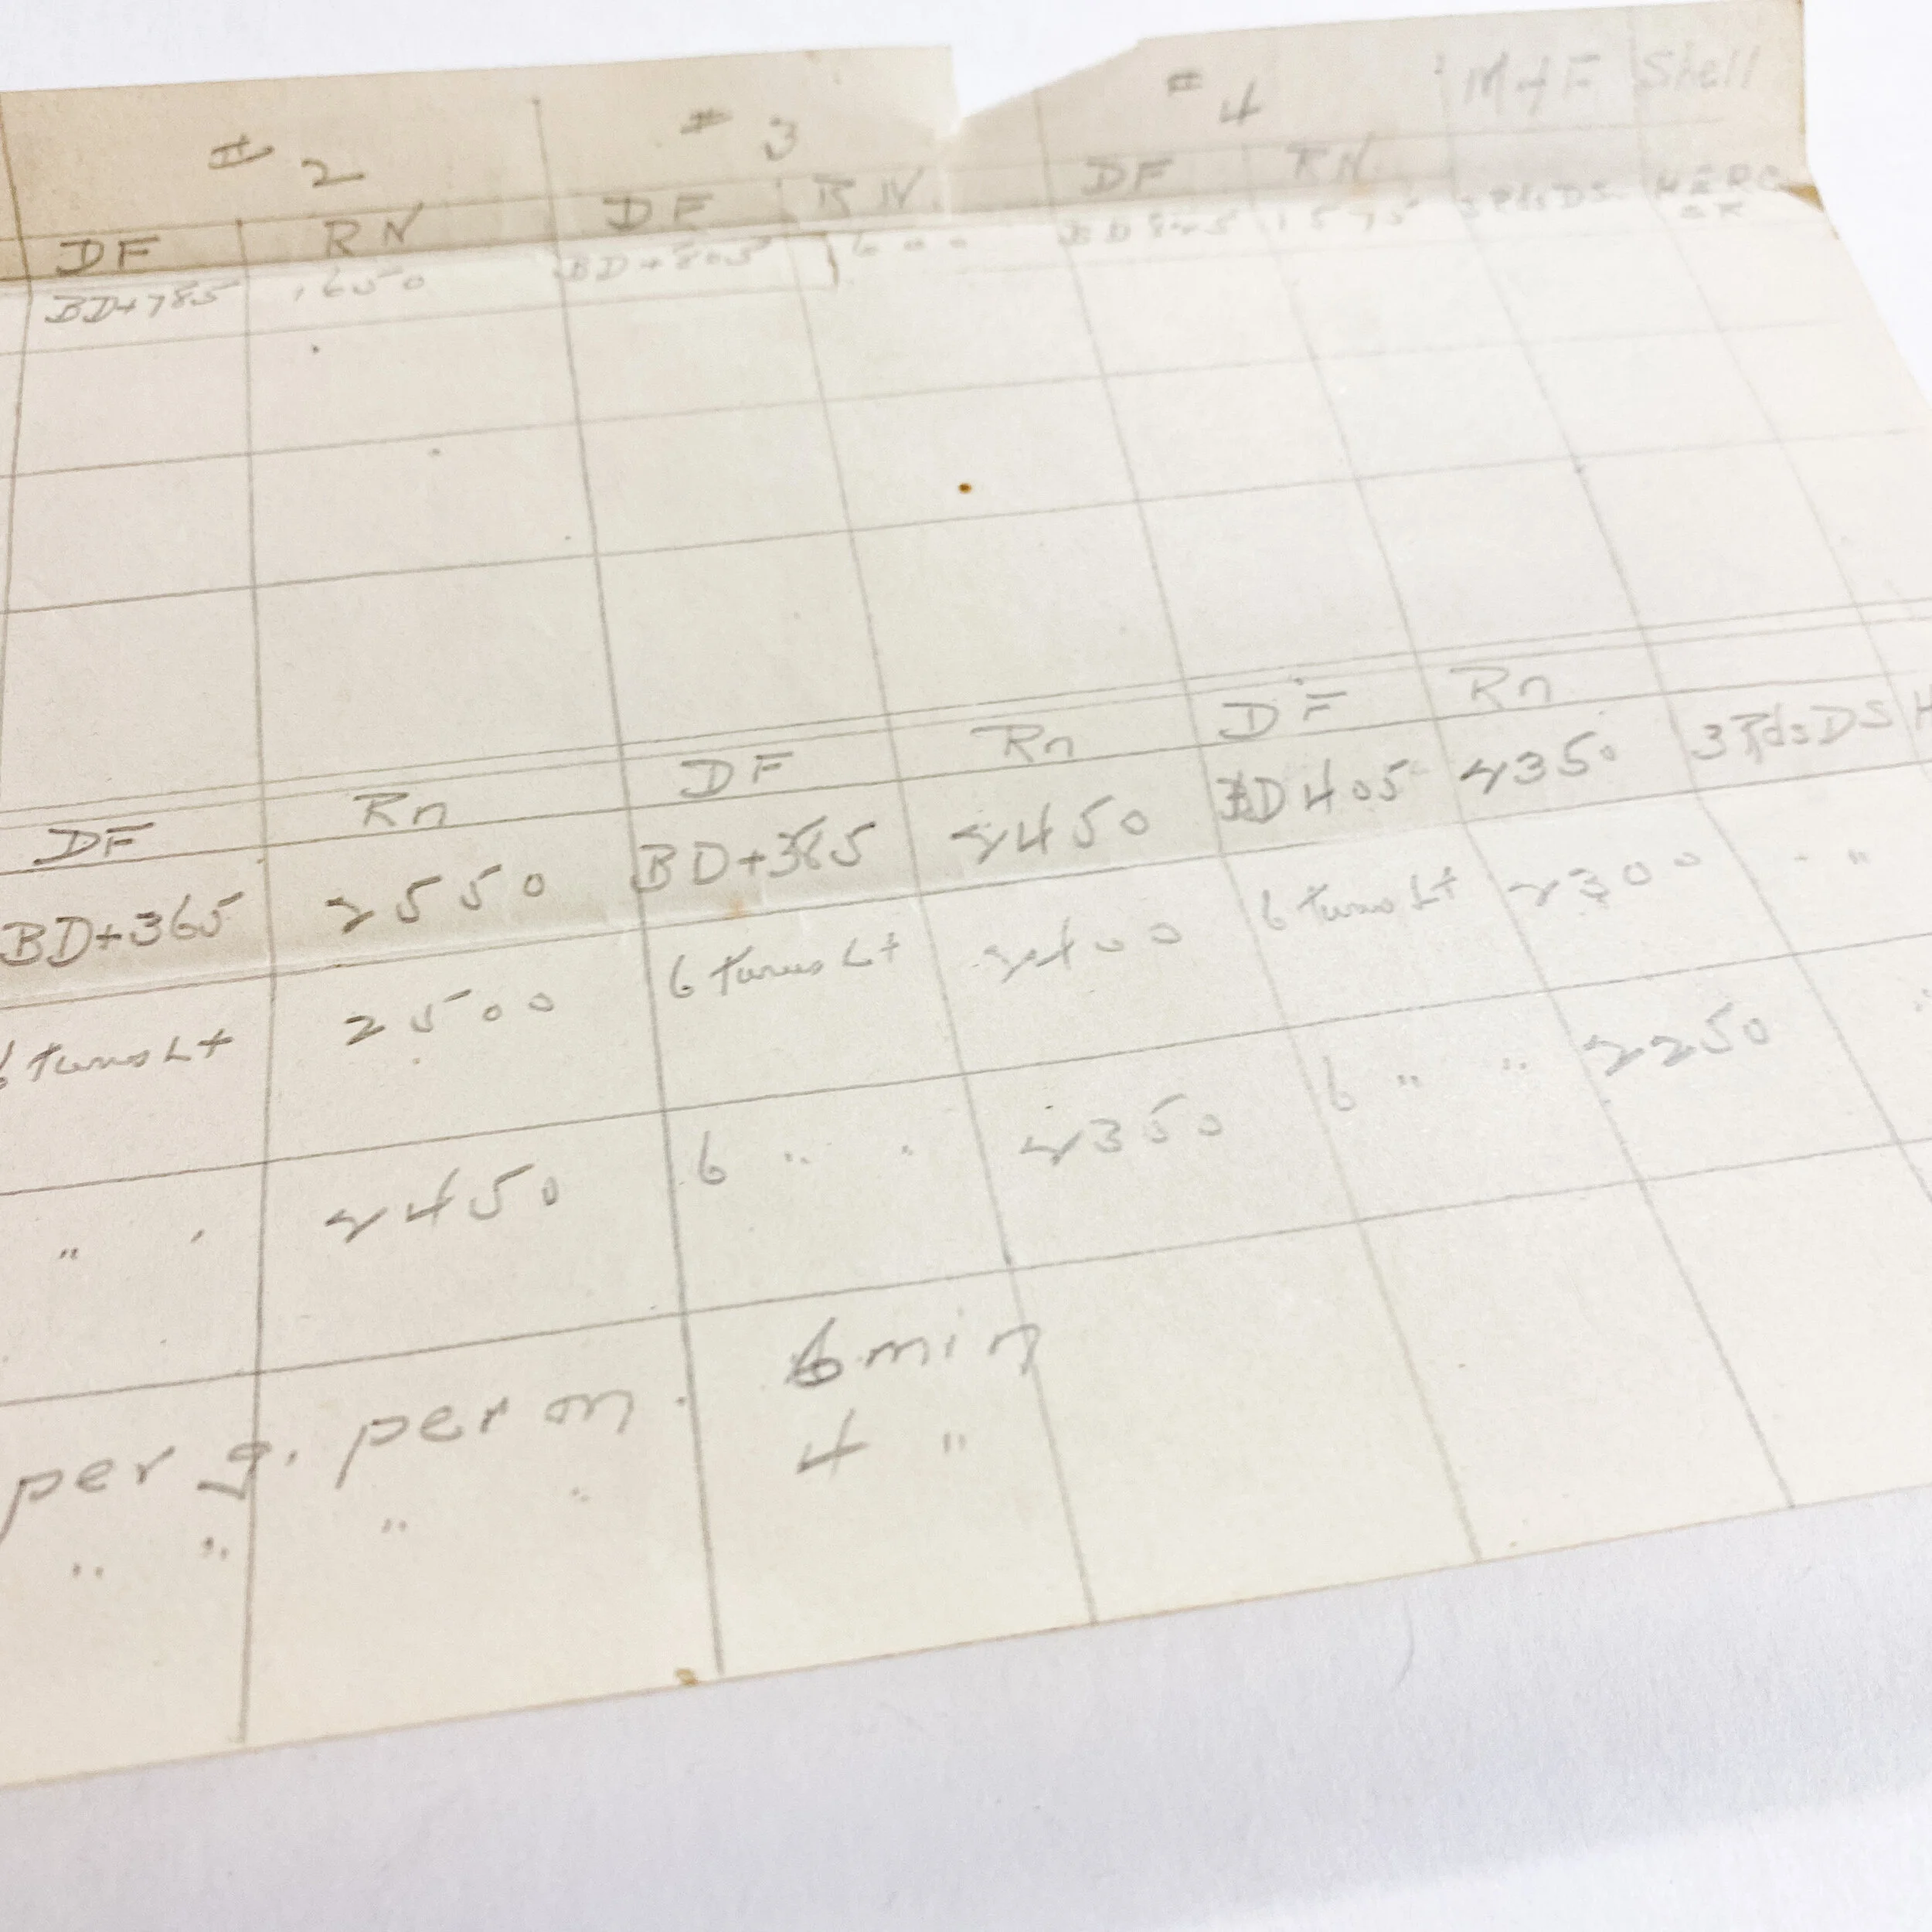 # 2 # 3 # 4 M+F Shell
DF RN DF RN. DF RN 3RdsDS HERC
BD+785 1650 BD+805 1600 BD 845 1575 OR
DF Rn DF Rn DF Rn
BD+365 2550 BD+385 2450 BD 405 2350 3RdsDS H
6 turns Lt 2500 6 turns Lt 2400 6 turns Lt 2300 " "
" " 2450 6 " " 2350 6 " " 2250 "
per g. per m. 6 min
" " " " 4 "